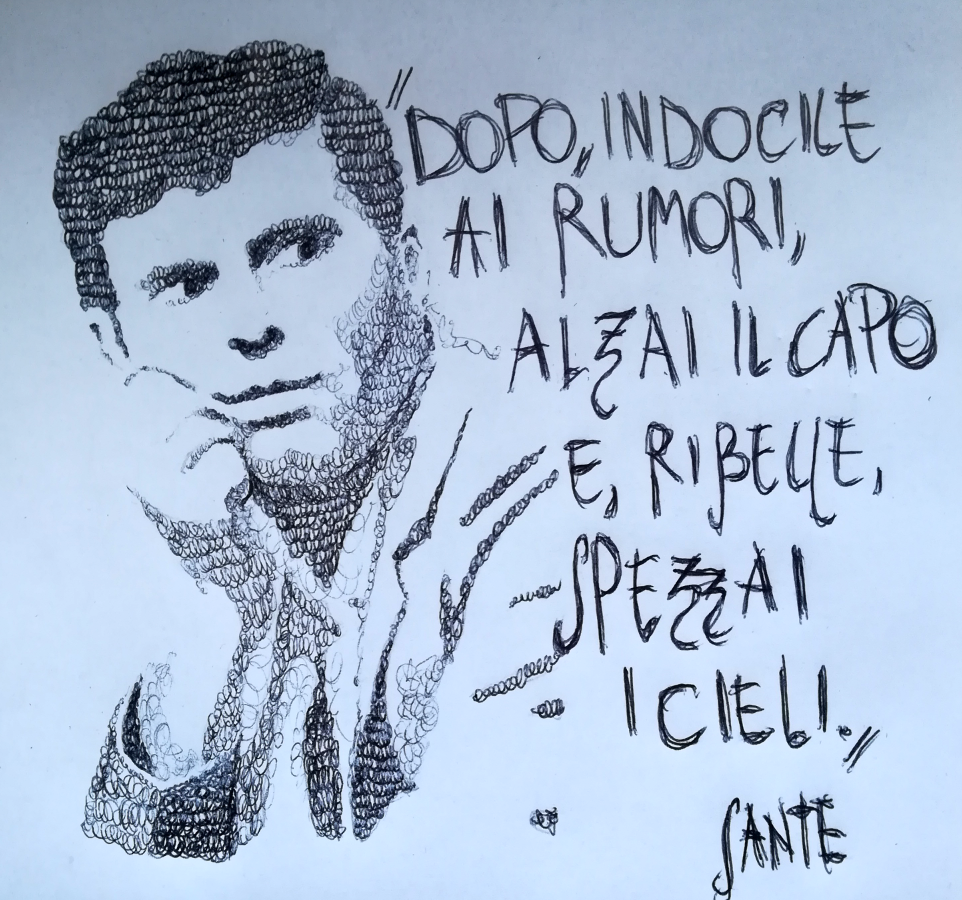 "DOPO, INDOCILE
AI RUMORI,
ALZAI IL CAPO
E, RIBELLE,
SPEZZAI
I CIELI."
SANTE